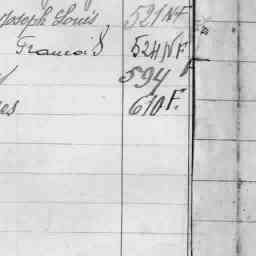 Joseph Louis, 521 NF
Francois 524 NF.
594 F
es 610 F.